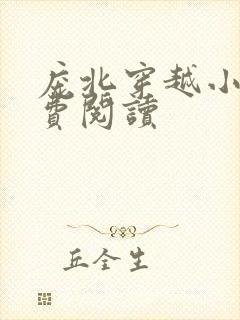 庞北穿越小
費閱讀
丘全生